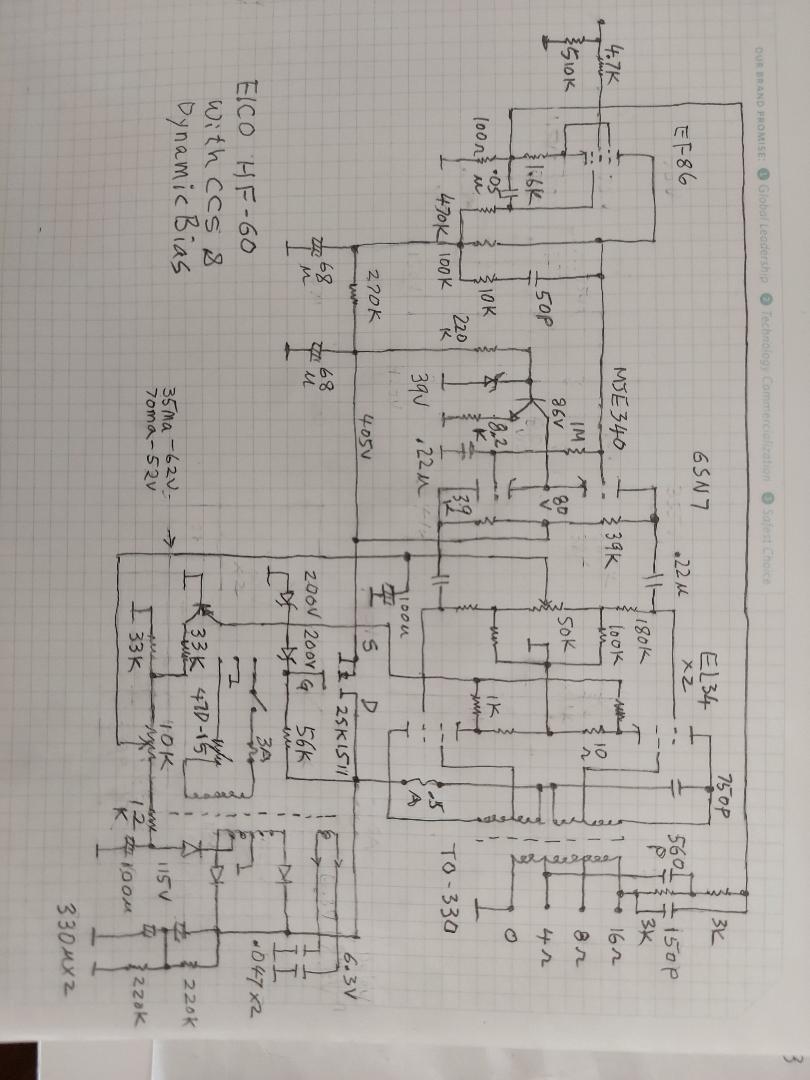 OUR BRAND PROMISE: 1 Global Leadership 2 Technology Commercialization 3 Safest Choice
3
EF-86
6SN7
MJE340
EL34
x2
4.7K
510K
100Ω
1.6K
.05
μ
470K
100K
10K
50P
220
K
39V
86V
8.2
K
1M
.22μ
80
V
39
K
39K
.22μ
180K
100K
50K
750P
1K
10
Ω
.5
A
560
P
3K
150P
3K
16Ω
8Ω
4Ω
0
TO-330
68
μ
270K
68
μ
405V
100u
200V
200V
S
G
D
2SK1511
56K
3A
47D-15
33K
33K
10K
12
K
115V
100μ
6.3V
.047x2
220K
220K
330μx2
35ma-62V
70ma-52V
EICO HF-60
With CCS &
Dynamic Bias